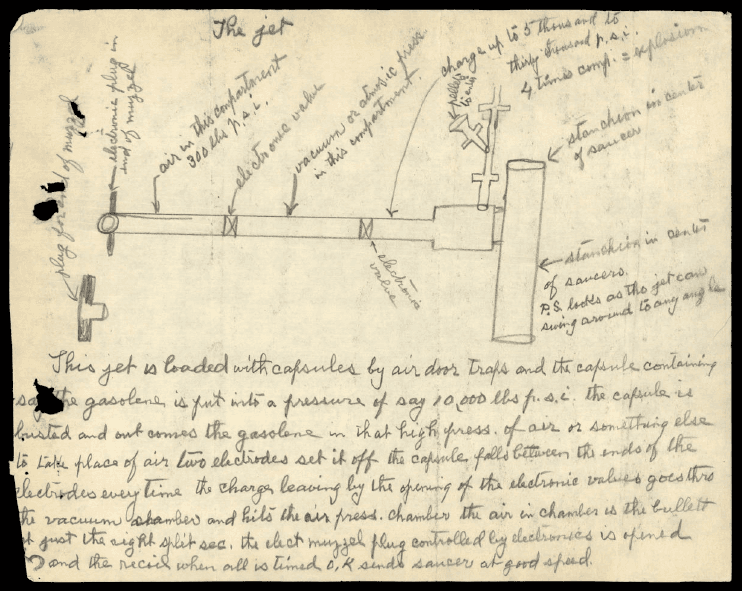 The jet
electronic plug in
end of muzzel
plug for end of muzzel
air in this compartment
300 lbs p.s.i.
electronic value
vacuum or atmosic press
in this compartment
charge up to 5 thousand to
thirty thousand p.s.i.
4 times comp. = explosion
stanchion in center
of saucer
stanchion in center
of saucers.
P.S. looks as tho jet can
swing around to any angle
electronic
value
This jet is loaded with capsules by air door traps and the capsule containing
say the gasolene is put into a pressure of say 10,000 lbs p.s.i. the capsule is
busted and out comes the gasolene in that high press. of air or something else
to take place of air two electrodes set it off the capsule falls between the ends of the
electrodes every time the charge leaving by the opening of the electronic values goes thro
the vacuum chamber and hits the air press. chamber the air in chamber is the bullett
at just the right split sec. the elect muzzel plug controlled by electronics is opened
and the recoil when all is timed O.K sends saucer at good speed.